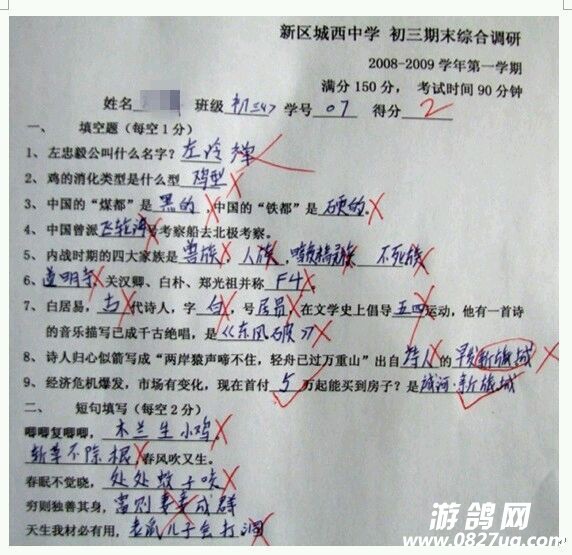 新区城西中学 初三期末综合调研
2008-2009 学年第一学期
满分 150 分， 考试时间 90 分钟
姓名 班级 初三(7) 学号 07 得分 2
一、 填空题（每空 1 分）
1、左忠毅公叫什么名字？左冷禅
2、鸡的消化类型是什么型 鸡型
3、中国的“煤都”是 黑的 ，中国的“铁都”是 硬的。
4、中国曾派 飞轮海 号考察船去北极考察。
5、内战时期的四大家族是 兽族、人族、暗夜精灵族 不死族
6、道明寺、关汉卿、白朴、郑光祖并称 F4。
7、白居易，古 代诗人，字 白，号 居易，在文学史上倡导 五四 运动，他有一首诗
的音乐描写已成千古绝唱，是《东风破》
8、诗人归心似箭写成“两岸猿声啼不住，轻舟已过万重山”出自 诗人 的 早新旅城
9、经济危机爆发，市场有变化，现在首付 5 万起能买到房子？是 城河·新旅城
二、 短句填写（每空 2 分）
唧唧复唧唧， 木兰生小鸡。
斩草不除根 春风吹又生。
春眠不觉晓， 处处蚊子咬
穷则独善其身，富则妻妾成群
天生我材必有用，老鼠儿子会打洞
游鸽网
www.0827ug.com